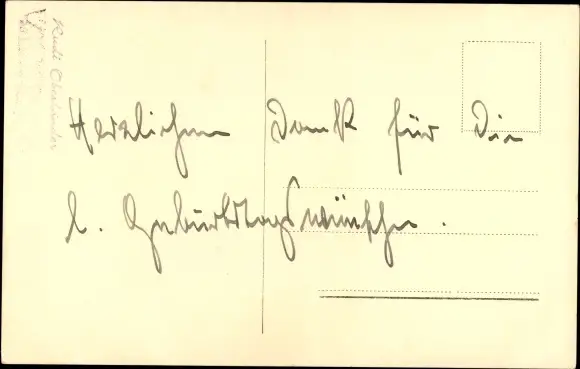 Herzlichen Dank für die
l. Geburtstagswünsche.
Rudi